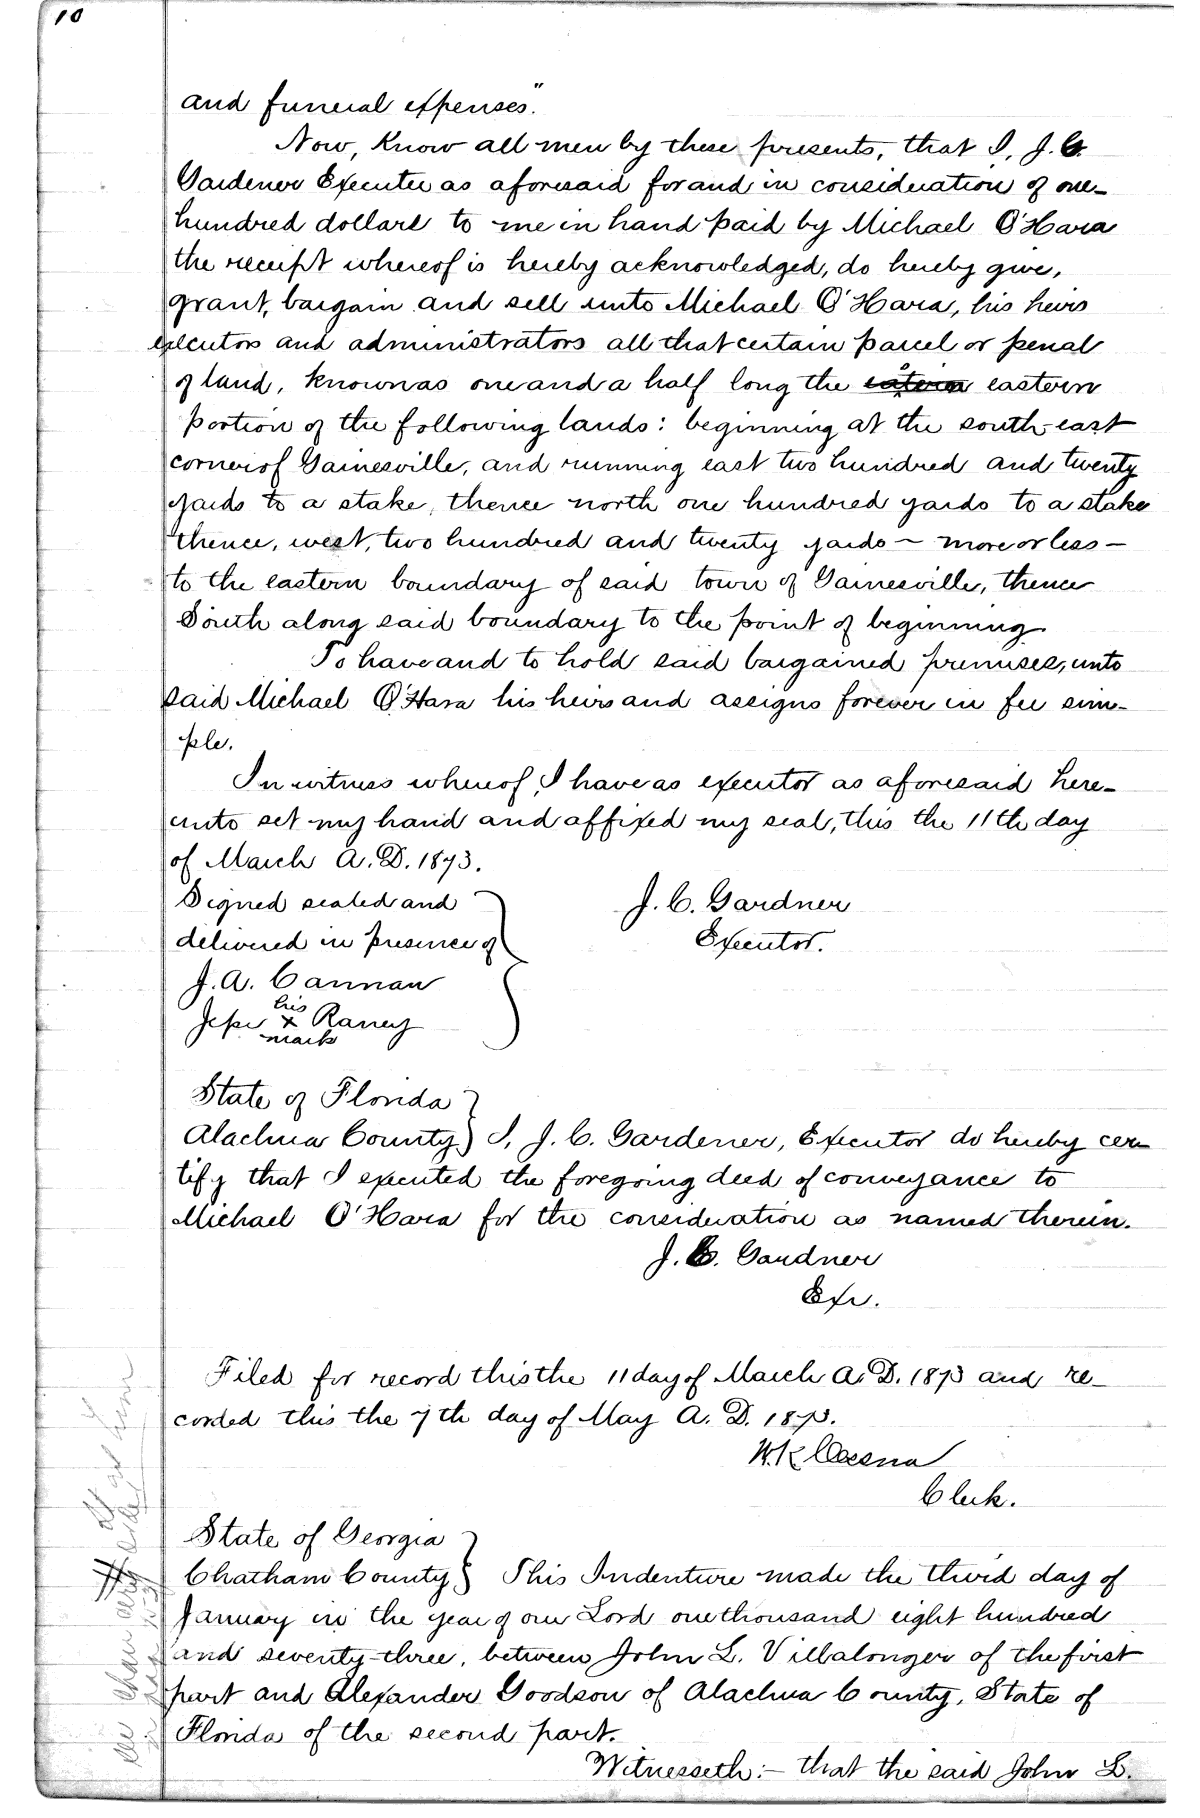 10
and funeral expenses."
Now, Know all men by these presents, that I, J. C.
Gardener Executer as aforesaid for and in consideration of one-
hundred dollars to me in hand paid by Michael O'Hara
the receipt whereof is hereby acknowledged, do hereby give,
grant, bargain and sell unto Michael O'Hara, his heirs
executors and administrators all that certain parcel or penal
of land, known as one and a half long the eastern eastern
portion of the following lands: beginning at the south-east
corner of Gainesville, and running east two hundred and twenty
yards to a stake, thence north one hundred yards to a stake
thence, west, two hundred and twenty yards – more or less –
to the eastern boundary of said town of Gainesville, thence
South along said boundary to the point of beginning.
To have and to hold said bargained premises, unto
said Michael O'Hara his heirs and assigns forever in fee sim-
ple.
In witness whereof, I have as executor as aforesaid here-
unto set my hand and affixed my seal, this the 11th day
of March A.D. 1873.
Signed sealed and
delivered in presence of
J. C. Gardner
Executor.
J. A. Cannan
his
Jesse x Raney
mark
State of Florida }
Alachua County } I, J. C. Gardener, Executor do hereby cer-
tify that I executed the foregoing deed of conveyance to
Michael O'Hara for the consideration as named therein.
J. C. Gardner
Exr.
Filed for record this the 11 day of March A.D. 1873 and re-
corded this the 7th day of May A. D. 1873.
W. K. Cessna
Clerk.
State of Georgia }
Chatham County } This Indenture made the third day of
January in the year of our Lord one thousand eight hundred
and seventy-three, between John L. Villalonger of the first
part and Alexander Goodson of Alachua County, State of
Florida of the second part.
Witnesseth:– that the said John L.